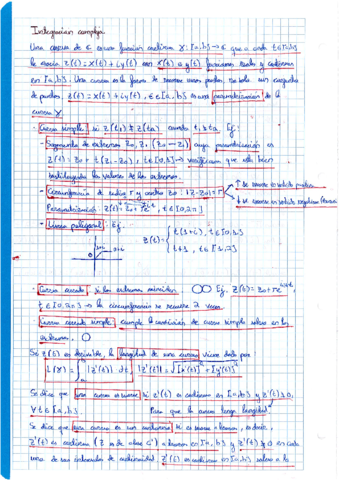 Integración compleja
Una curva de ℂ es una función continua γ: [a,b] → ℂ que a cada t∈[a,b]
le asocia z(t) = x(t) + iy(t) con x(t) e y(t) funciones reales y continuas
en [a,b]. Una curva es la forma de recorrer unos puntos, no solo un conjunto
de puntos. z(t) = x(t) + iy(t), t∈[a,b] es una parametrización de la
curva γ
- Curva simple: si z(t₁) ≠ z(t₂) cuando t₁≠t₂. Ej:
- Segmento de extremos z₀, z₁ (z₀→z₁) cuya parametrización es
z(t) = z₀ + t(z₁-z₀), t∈[0,1] → verificar que está bien
sustituyendo los valores de los extremos.
- Circunferencia de radio r y centro z₀: |z-z₀|=r
↑ Se recorre en sentido positivo
Parametrización z(t) = z₀ + re^{it}, t∈[0,2π]
↓ se recorre en sentido negativo
- Curva poligonal: Ej.
z(t) = { t(1+i), t∈[0,1]
t+i, t∈[1,2]
- Curva cerrada: si los extremos coinciden. Ej. z(t) = z₀ + re^{it},
t∈[0,2π] → la circunferencia se recorre 2 veces.
Curva cerrada simple: cumple la condición de curva simple salvo en los
extremos.
Si z(t) es derivable, la longitud de una curva viene dada por:
L(γ) = ∫ |z'(t)| dt, |z'(t)| = √[x'(t)]² + [y'(t)]²
Se dice que una curva es suave si z'(t) es continua en [a,b] y z'(t) ≠ 0,
∀t∈[a,b]. Para que la curva tenga longitud
Se dice que una curva es un contorno si es suave a trozos, es decir,
z'(t) es continua (z es de clase C¹) a trozos en [a,b] y z'(t) ≠ 0 en cada
uno de sus intervalos de continuidad. z'(t) es continua en [a,b] salvo a lo